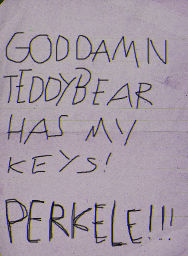 GODDAMN
TEDDYBEAR
HAS MY
KEYS!
PERKELE!!!